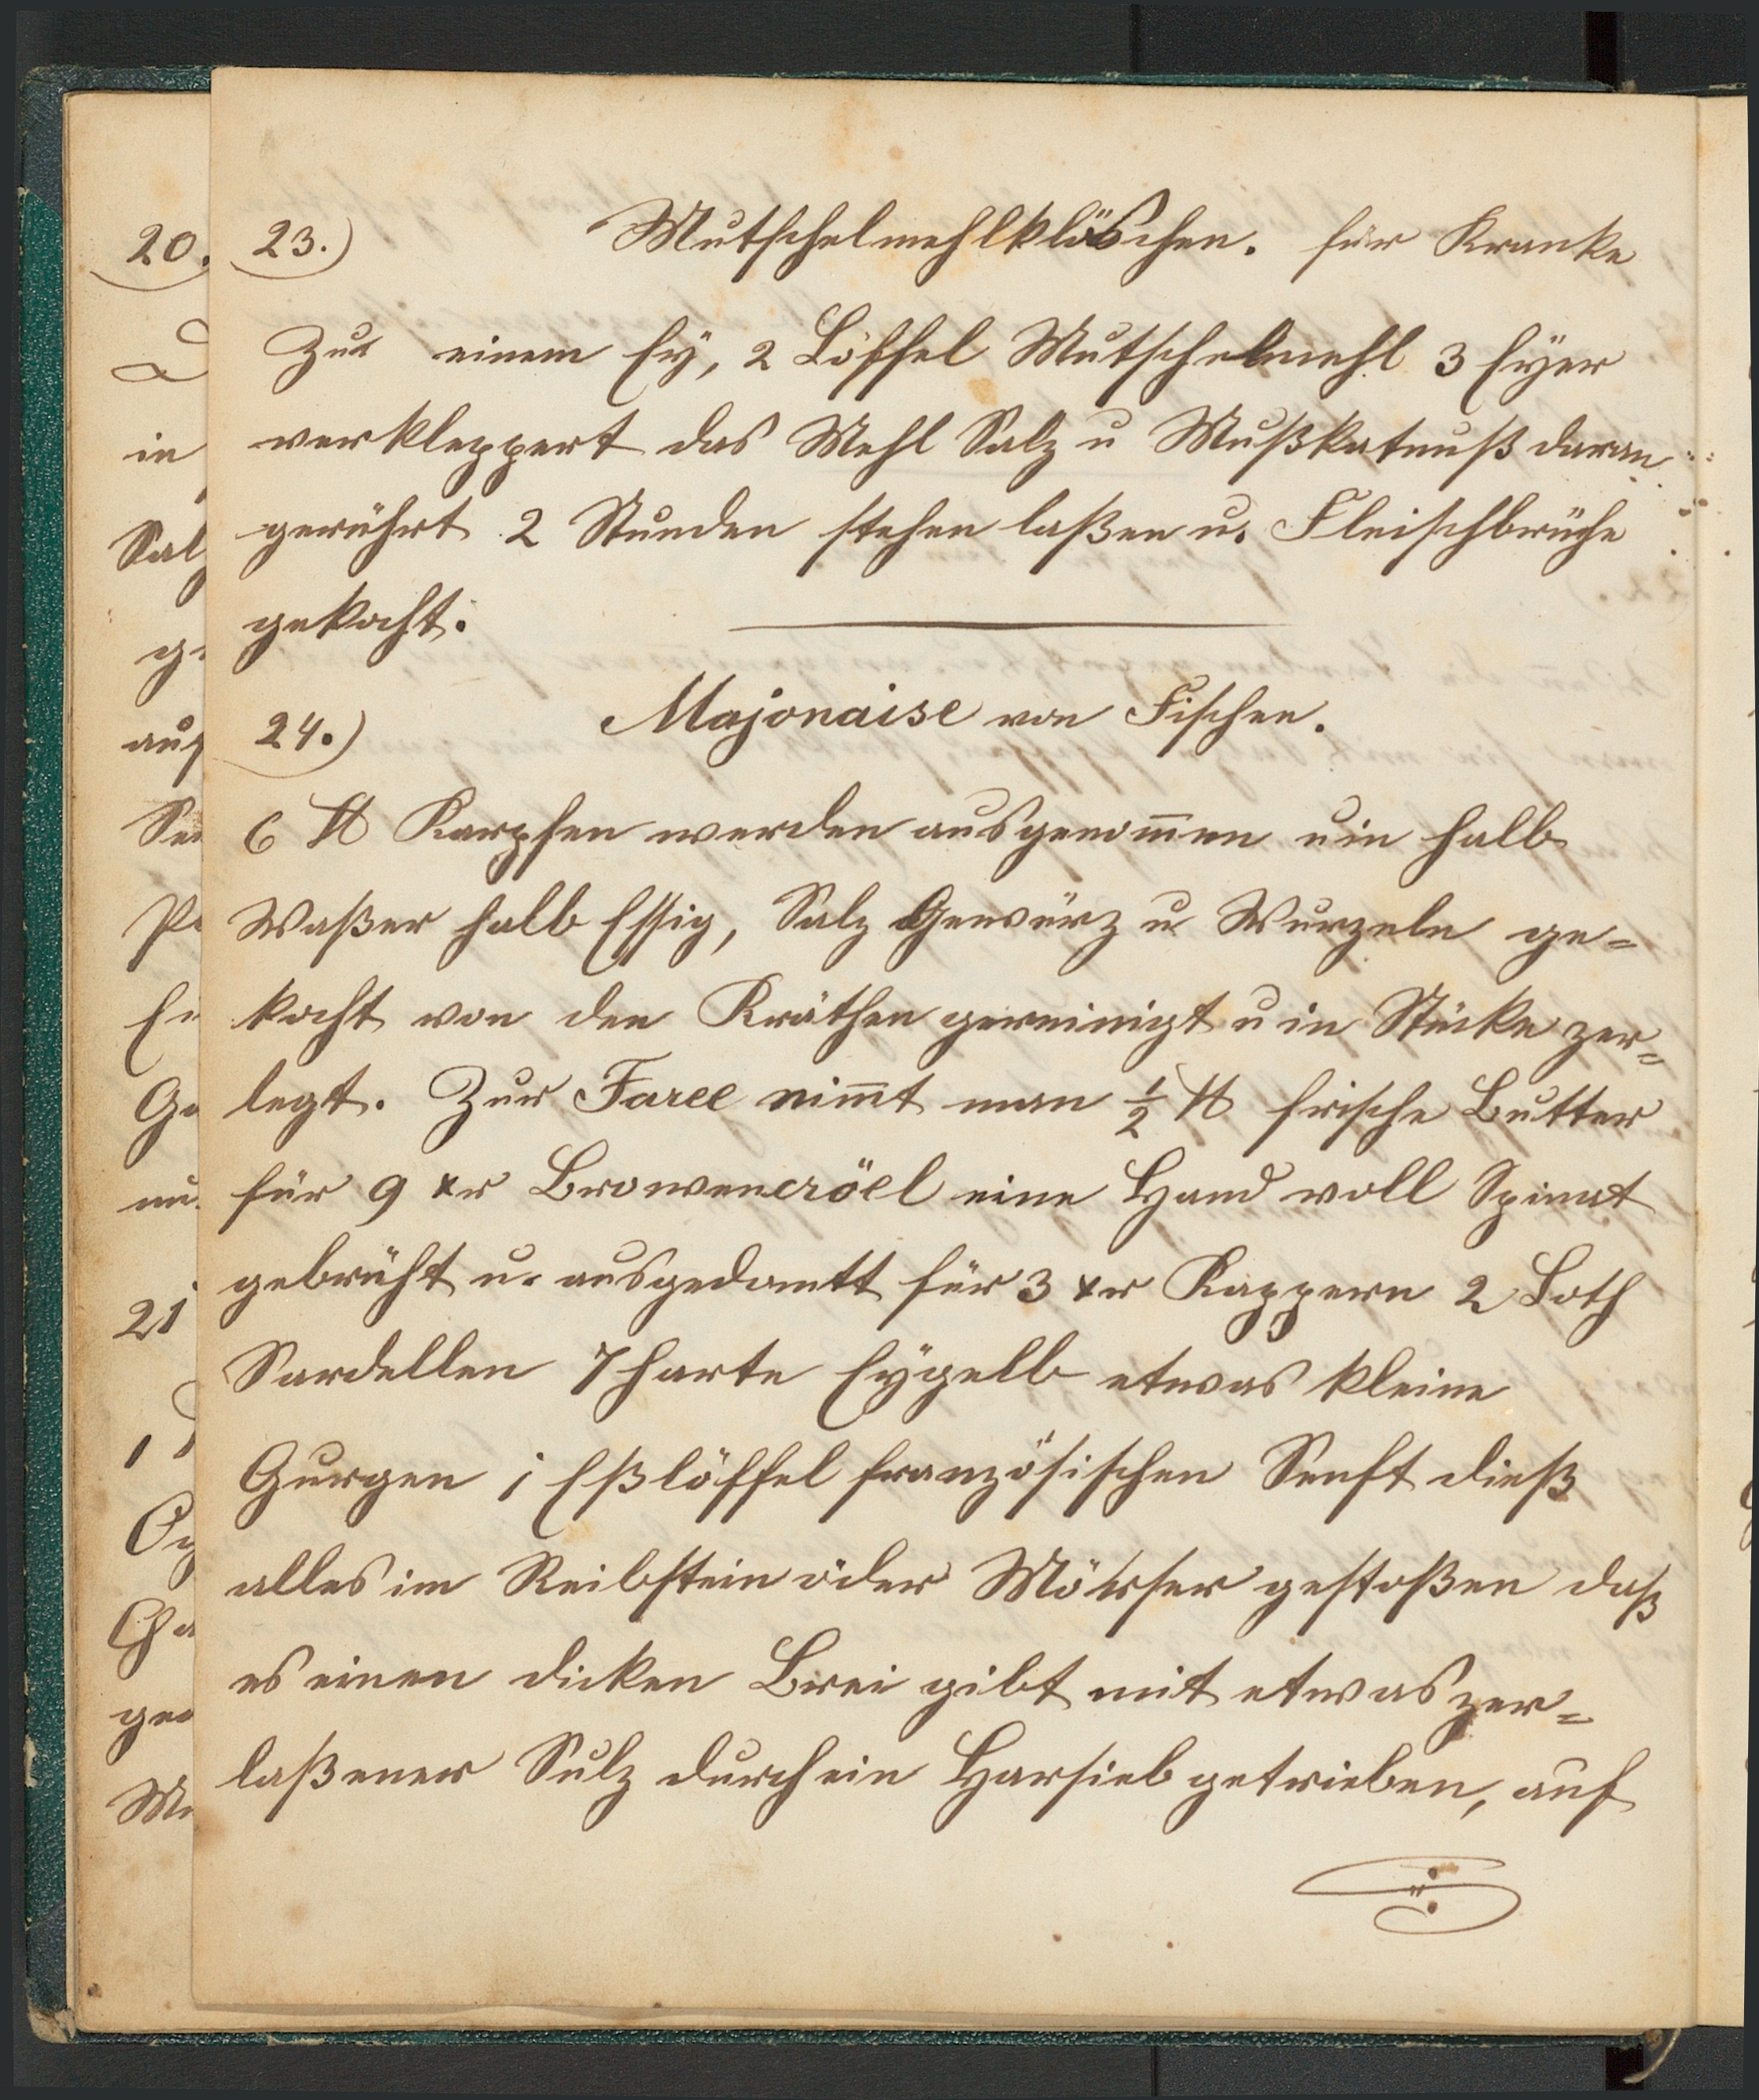 23.) Mutschelmehlklöschen. für Kranke
Zur einem Ey, 2 Löffel Mutschelmehl 3 Eyer
verkleppert das Mehl Salz u Mußkatnuß daran
gerührt 2 Stunden stehen laßen u. Fleischbrühe
gekocht.
24.) Majonaise von Fischen.
6 ℔ Karpfen werden ausgenom̄en u in halb
Waßer halb Essig, Salz Gewürz u Wurzeln ge=
kocht von den Kräthen gereinigt u in Stücke zer=
legt. Zur Farce nim̄t man ½ ℔ frische Butter
für 9 xr Browencröel eine Hand voll Spinat
gebrüht u. ausgedamtt für 3 xr Kappern 2 Loth
Sardellen 7 harte Eygelb etwas kleine
Gurgen 1 Eßlöffel französischen Senft dieß
alles im Reibstein oder Mörser gestoßen daß
es einen dicken Brei gibt mit etwas zer=
laßener Sulz durch ein Harsieb getrieben, auf
20.
in
Salz
auf
21